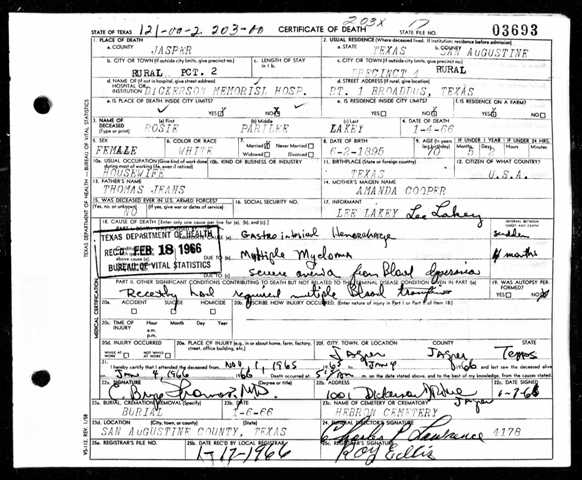 203x 17
STATE OF TEXAS 121-00-2. 203-00 CERTIFICATE OF DEATH STATE FILE NO. 03693
1. PLACE OF DEATH 2. USUAL RESIDENCE (Where deceased lived. If institution: residence before admission)
a. COUNTY JASPER a. STATE TEXAS b. COUNTY SAN AUGUSTINE
b. CITY OR TOWN (If outside city limits, give precinct no.) c. LENGTH OF STAY in 1 b. c. CITY OR TOWN (If outside city limits, give precinct no.)
RURAL PCT. 2 PRECINCT 4 RURAL
d. NAME OF (If not in hospital, give street address) HOSPITAL OR INSTITUTION DICKERSON MEMORISL HOSP. d. STREET ADDRESS (If rural, give location) RT. 1 BROADDUS, TEXAS
e. IS PLACE OF DEATH INSIDE CITY LIMITS? e. IS RESIDENCE INSIDE CITY LIMITS? f. IS RESIDENCE ON A FARM?
YES NO YES NO YES NO
3. NAME OF DECEASED (Type or print) (a) First ROSIE (b) Middle (c) Last LAKEY 4. DATE OF DEATH 1-4-66
5. SEX FEMALE 6. COLOR OR RACE WHITE 7. Married Never Married Widowed Divorced 8. DATE OF BIRTH 6-2-1895 9. AGE 70 IF UNDER 1 YEAR IF UNDER 24 HRS. Months Days Hours Minutes
10a. USUAL OCCUPATION (Give kind of work done during most of working life, even if retired) HOUSEWIFE 10b. KIND OF BUSINESS OR INDUSTRY 11. BIRTHPLACE (State or foreign country) TEXAS 12. CITIZEN OF WHAT COUNTRY? U.S.A.
13. FATHER'S NAME THOMAS JEANS 14. MOTHER'S MAIDEN NAME AMANDA COOPER
15. WAS DECEASED EVER IN U.S. ARMED FORCES? (Yes, no, or unknown) (If yes, give war or dates of service) NO 16. SOCIAL SECURITY NO. 17. INFORMANT LEE LAKEY Lee Lakey
18. CAUSE OF DEATH (Enter only one cause per line for (a), (b), and (c).) INTERVAL BETWEEN
TEXAS DEPARTMENT OF HEALTH
REC'D FEB 18 1966
BUREAU OF VITAL STATISTICS
Hemorrhage sudden
DUE TO Multiple Myeloma 4 months
DUE TO severe anemia from Blood
PART II. OTHER SIGNIFICANT CONDITIONS CONTRIBUTING TO DEATH BUT NOT RELATED TO THE TERMINAL DISEASE CONDITION GIVEN IN PART I(a) 19. WAS AUTOPSY PERFORMED? YES NO
had required multiple Blood
20a. ACCIDENT SUICIDE HOMICIDE 20b. DESCRIBE HOW INJURY OCCURRED. (Enter nature of injury in Part I or Part II of item 18.)
20c. TIME OF INJURY Hour Month Day Year a.m. p.m.
20d. INJURY OCCURRED WHILE AT WORK NOT WHILE AT WORK 20e. PLACE OF INJURY (e.g., in or about home, farm, factory, street, office building, etc.) 20f. CITY, TOWN, OR LOCATION COUNTY STATE
Jasper Jasper Texas
21. I hereby certify that I attended the deceased from Nov 1, 1965
Jan 4, 1966 Death occurred at m. on the date stated above, and to the best of my knowledge, from the causes stated.
22a. SIGNATURE 22b. ADDRESS 22c. DATE SIGNED
M.D. 1001 Dickerson Drive Jasper
23a. BURIAL, CREMATION, REMOVAL (Specify) BURIAL 23b. DATE 1-6-66 23c. NAME OF CEMETERY OR CREMATORY HEBRON CEMETERY
23d. LOCATION (City, town, or county) (State) SAN AUGUSTINE COUNTY, TEXAS 24. FUNERAL DIRECTOR'S SIGNATURE Charles P Lawrence 4176
25a. REGISTRAR'S FILE NO. 25b. DATE REC'D BY LOCAL REGISTRAR 1-17-1966 25c. REGISTRAR'S SIGNATURE Roy Ellis
TEXAS DEPARTMENT OF HEALTH - BUREAU OF VITAL STATISTICS
MEDICAL CERTIFICATION
VS-112, REV. 1/58